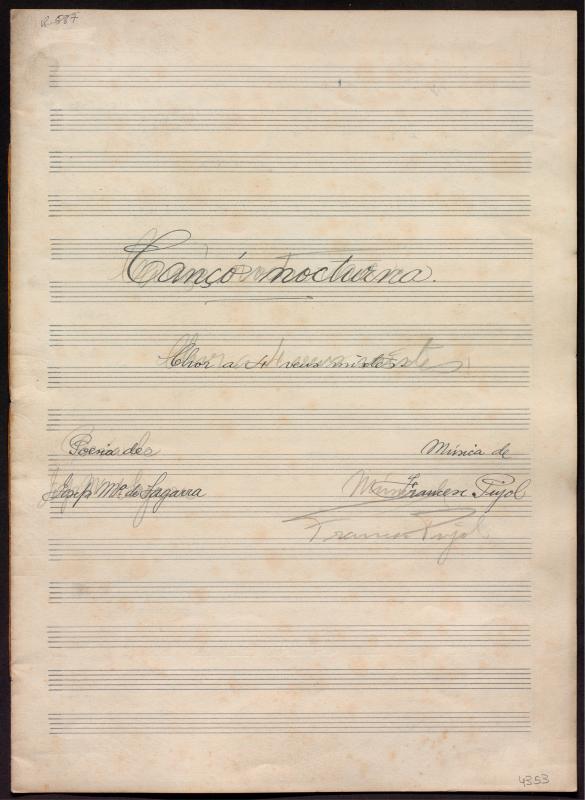 R-587
Cançó nocturna.
Chor a 4 veus mixtes
Poesia de
Música de
Josep Mª de Sagarra
Francesc Pujol
Francesc Pujol
4353